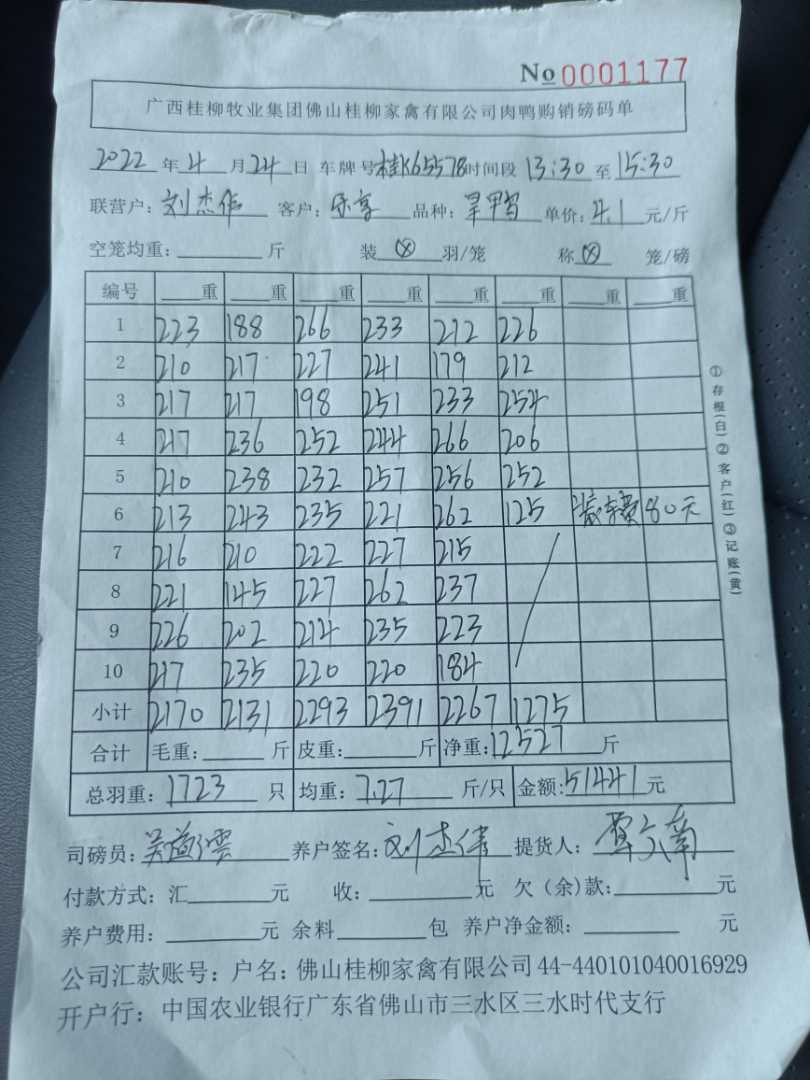 No 0001177
广西桂柳牧业集团佛山桂柳家禽有限公司肉鸭购销磅码单
2022 年 4 月 24 日 车牌号 桂K65578 时间段 13:30 至 15:30
联营户: 刘杰伟 客户: 品种: 单价: 4.1 元/斤
空笼均重: 斤 装 ⊗ 羽/笼 称 ⊗ 笼/磅
编号 重 重 重 重 重 重 重 重
1 223 188 266 233 212 226
2 210 217 227 241 179 212
3 217 217 198 251 233 254
4 217 236 252 244 266 206
5 210 238 232 257 256 252
6 213 243 235 221 262 125 装车费 80元
7 216 210 222 227 215
8 221 145 227 262 237
9 226 202 214 235 223
10 217 235 220 220 184
小计 2170 2131 2293 2391 2267 1275
合计 毛重: 斤 皮重: 斤 净重: 12527 斤
总羽重: 1723 只 均重: 7.27 斤/只 金额: 51441 元
司磅员: 养户签名: 刘杰伟 提货人:
付款方式: 汇 元 收: 元 欠(余)款: 元
养户费用: 元 余料 包 养户净金额: 元
公司汇款账号: 户名: 佛山桂柳家禽有限公司 44-440101040016929
开户行: 中国农业银行广东省佛山市三水区三水时代支行
①存根(白)②客户(红)③记账(黄)